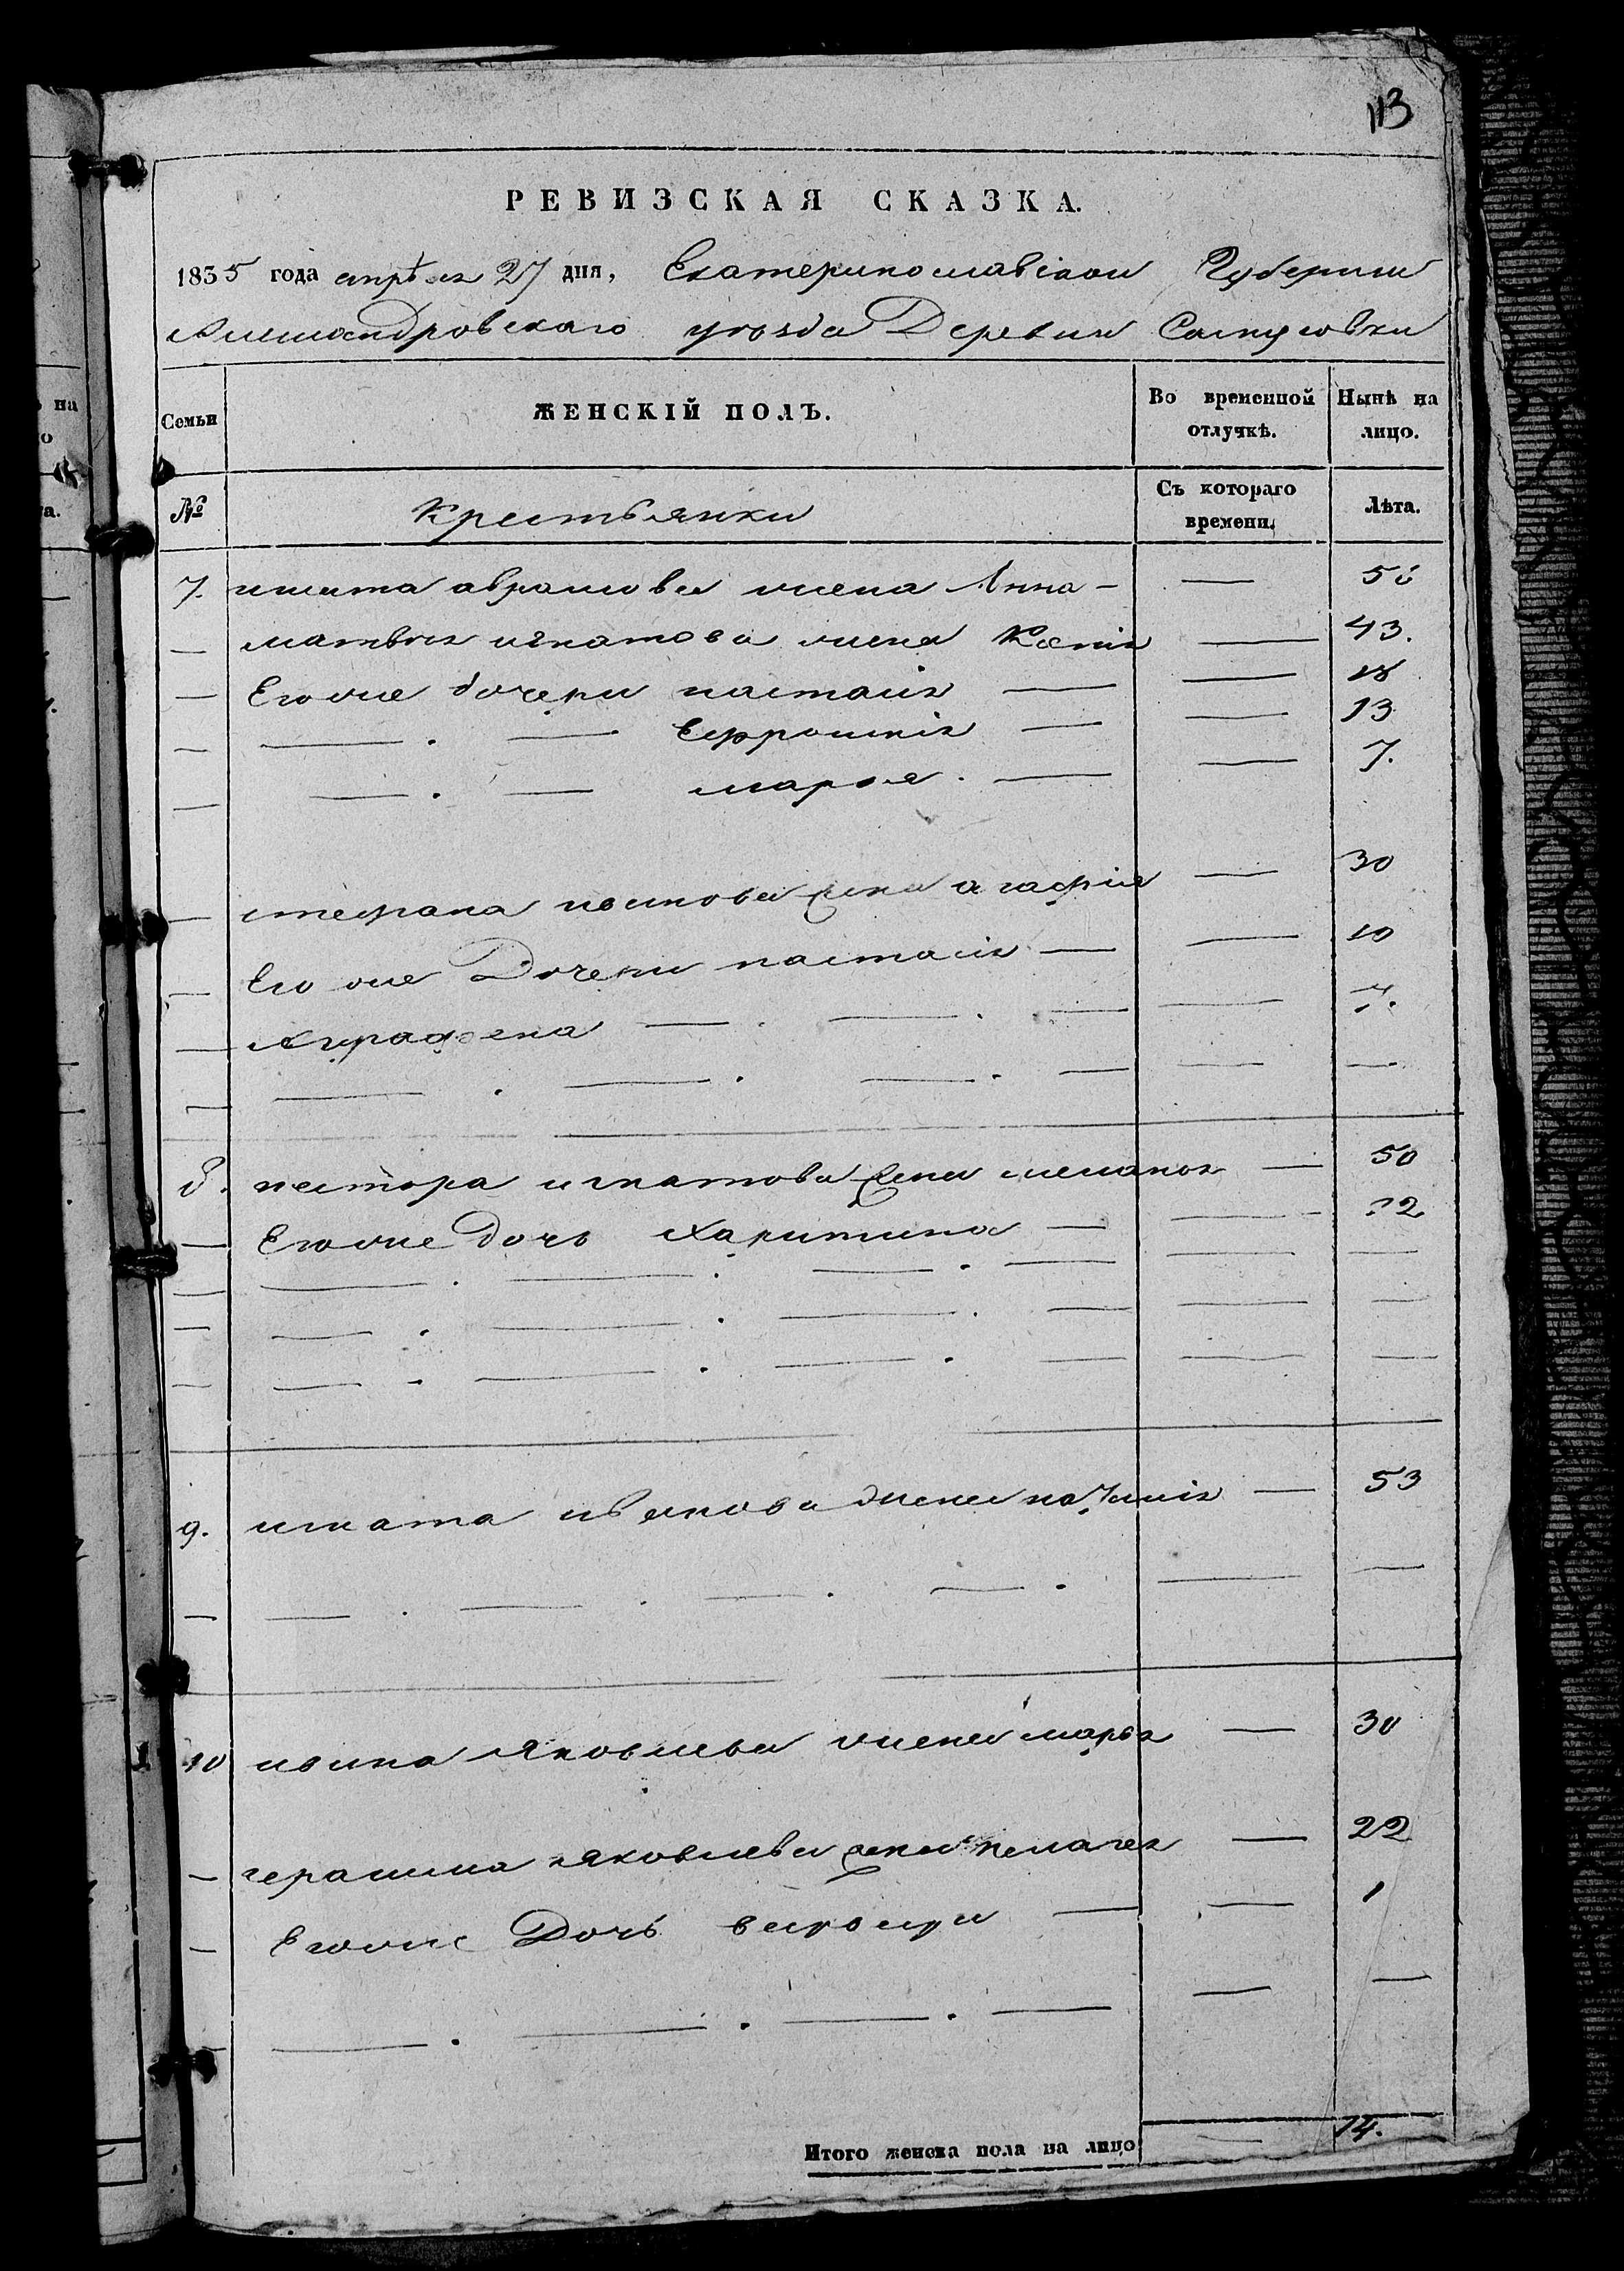 113
РЕВИЗСКАЯ СКАЗКА.
1835 года апрѣля 27 дня, Екатеринославской Губернии
Александровскаго уѣзда Деревни
Семьи
ЖЕНСКІЙ ПОЛЪ.
Во временной отлучкѣ.
Нынѣ на лицо.
№
Крестьянки
Съ котораго времени.
Лѣта.
7. игната аврамова жена Анна — — 50
— матвея игнатова жена Ксенія — 43.
— Егоже дочери настасія — — 18
— — . — Ефросинія — — 13
— — . — марья . — — 7.
— стефана иванова жена агафия — 30
— Его же Дочери настасія — — 10
— Аграфена — . — . — — 7.
— — . — . — . — — —
8. нестора игнатова жена меланья — 50
— Егоже дочь Харитина — — 22
— — . — . — . — — —
— — . — . — . — — —
— — . — . — . — — —
9. игната иванова жена наталія — 53
— — . — . — . — . — —
10 ивана Яковлева жена марья — 30
— герасима яковлева жена пелагея — 22
— Егоже Дочь — — 1
— — . — . — . — — —
Итого женска пола на лицо — 14.
на
о
а.